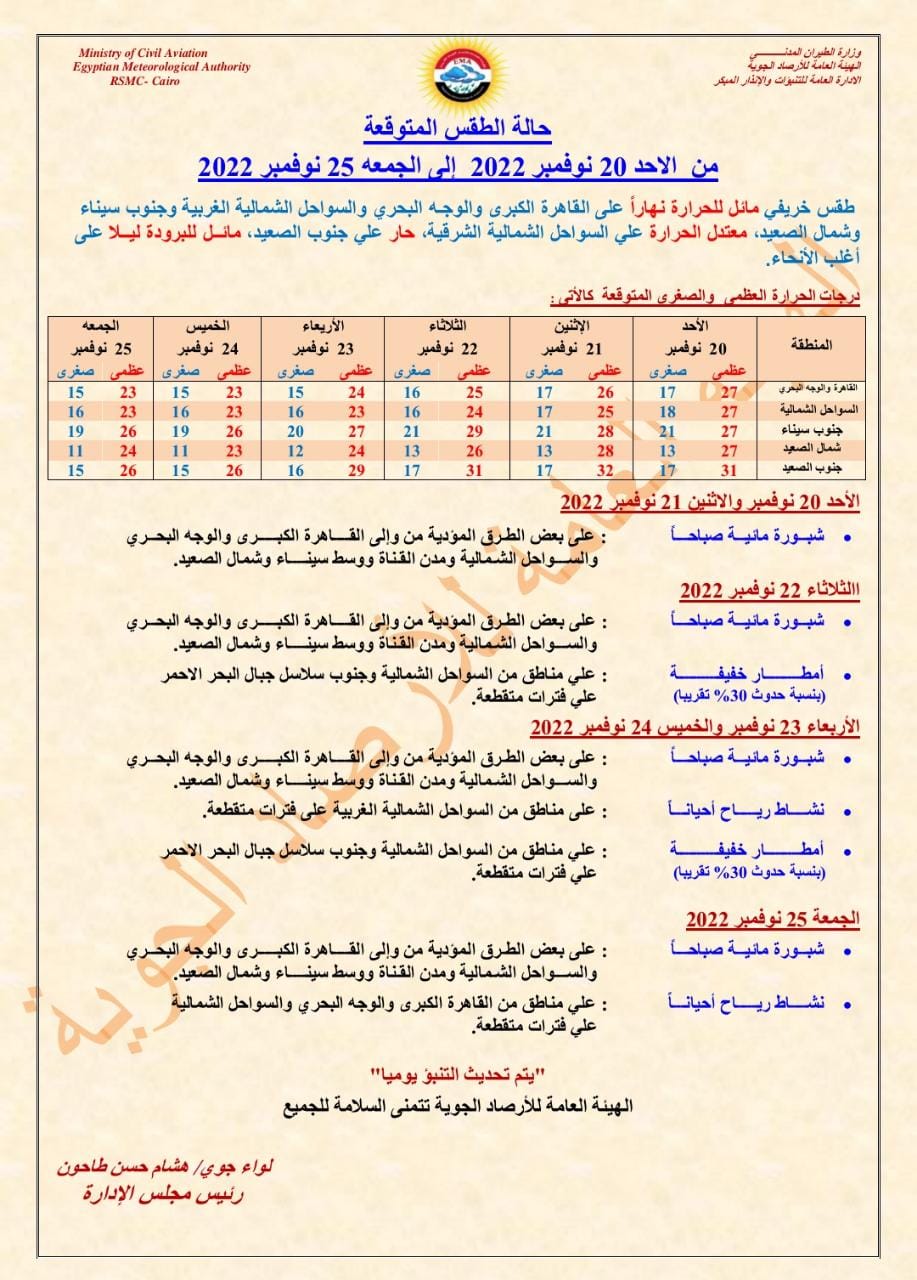 Ministry of Civil Aviation
Egyptian Meteorological Authority
RSMC- Cairo
وزارة الطيران المدنـــــي
الهيئة العامة للأرصاد الجوية
الادارة العامة للتنبؤات والإنذار المبكر
EMA
حالة الطقس المتوقعة
من الاحد 20 نوفمبر 2022 إلى الجمعه 25 نوفمبر 2022
طقس خريفي مائل للحرارة نهاراً على القاهرة الكبرى والوجه البحري والسواحل الشمالية الغربية وجنوب سيناء
وشمال الصعيد، معتدل الحرارة علي السواحل الشمالية الشرقية، حار علي جنوب الصعيد، مائـل للبرودة ليـلا على
أغلب الأنحاء.
درجات الحرارة العظمى والصغرى المتوقعة كالأتى:
المنطقة الأحد الإثنين الثلاثاء الأربعاء الخميس الجمعه
20 نوفمبر 21 نوفمبر 22 نوفمبر 23 نوفمبر 24 نوفمبر 25 نوفمبر
عظمى صغرى عظمى صغرى عظمى صغرى عظمى صغرى عظمى صغرى عظمى صغرى
القاهرة والوجه البحري 27 17 26 17 25 16 24 15 23 15 23 15
السواحل الشمالية 27 18 25 17 24 16 23 16 23 16 23 16
جنوب سيناء 27 21 28 21 29 21 27 20 26 19 26 19
شمال الصعيد 27 13 28 13 26 13 24 12 23 11 24 11
جنوب الصعيد 31 17 32 17 31 17 29 16 26 15 26 15
الأحد 20 نوفمبر والاثنين 21 نوفمبر 2022
• شبـورة مائيـة صباحـاً : على بعض الطرق المؤدية من وإلى القـــاهرة الكبـــرى والوجه البحـري
والســواحل الشمالية ومدن القناة ووسط سينـــاء وشمال الصعيد.
االثلاثاء 22 نوفمبر 2022
• شبـورة مائيـة صباحـاً : على بعض الطرق المؤدية من وإلى القـــاهرة الكبـــرى والوجه البحـري
والســواحل الشمالية ومدن القناة ووسط سينـــاء وشمال الصعيد.
• أمطـــار خفيفــــة : علي مناطق من السواحل الشمالية وجنوب سلاسل جبال البحر الاحمر
(بنسبة حدوث 30% تقريبا) علي فترات متقطعة.
الأربعاء 23 نوفمبر والخميس 24 نوفمبر 2022
• شبـورة مائيـة صباحـاً : على بعض الطرق المؤدية من وإلى القـــاهرة الكبـــرى والوجه البحـري
والســواحل الشمالية ومدن القناة ووسط سينـــاء وشمال الصعيد.
• نشـاط ريـــاح أحيانــاً : على مناطق من السواحل الشمالية الغربية على فترات متقطعة.
• أمطـــار خفيفــــة : علي مناطق من السواحل الشمالية وجنوب سلاسل جبال البحر الاحمر
(بنسبة حدوث 30% تقريبا) علي فترات متقطعة.
الجمعة 25 نوفمبر 2022
• شبـورة مائيـة صباحـاً : على بعض الطرق المؤدية من وإلى القـــاهرة الكبـــرى والوجه البحـري
والســواحل الشمالية ومدن القناة ووسط سينـــاء وشمال الصعيد.
• نشـاط ريـــاح أحيانــاً : علي مناطق من القاهرة الكبرى والوجه البحري والسواحل الشمالية
علي فترات متقطعة.
"يتم تحديث التنبؤ يوميا"
الهيئة العامة للأرصاد الجوية تتمنى السلامة للجميع
لواء جوي/ هشام حسن طاحون
رئيس مجلس الإدارة
الهيئة العامة للأرصاد الجوية